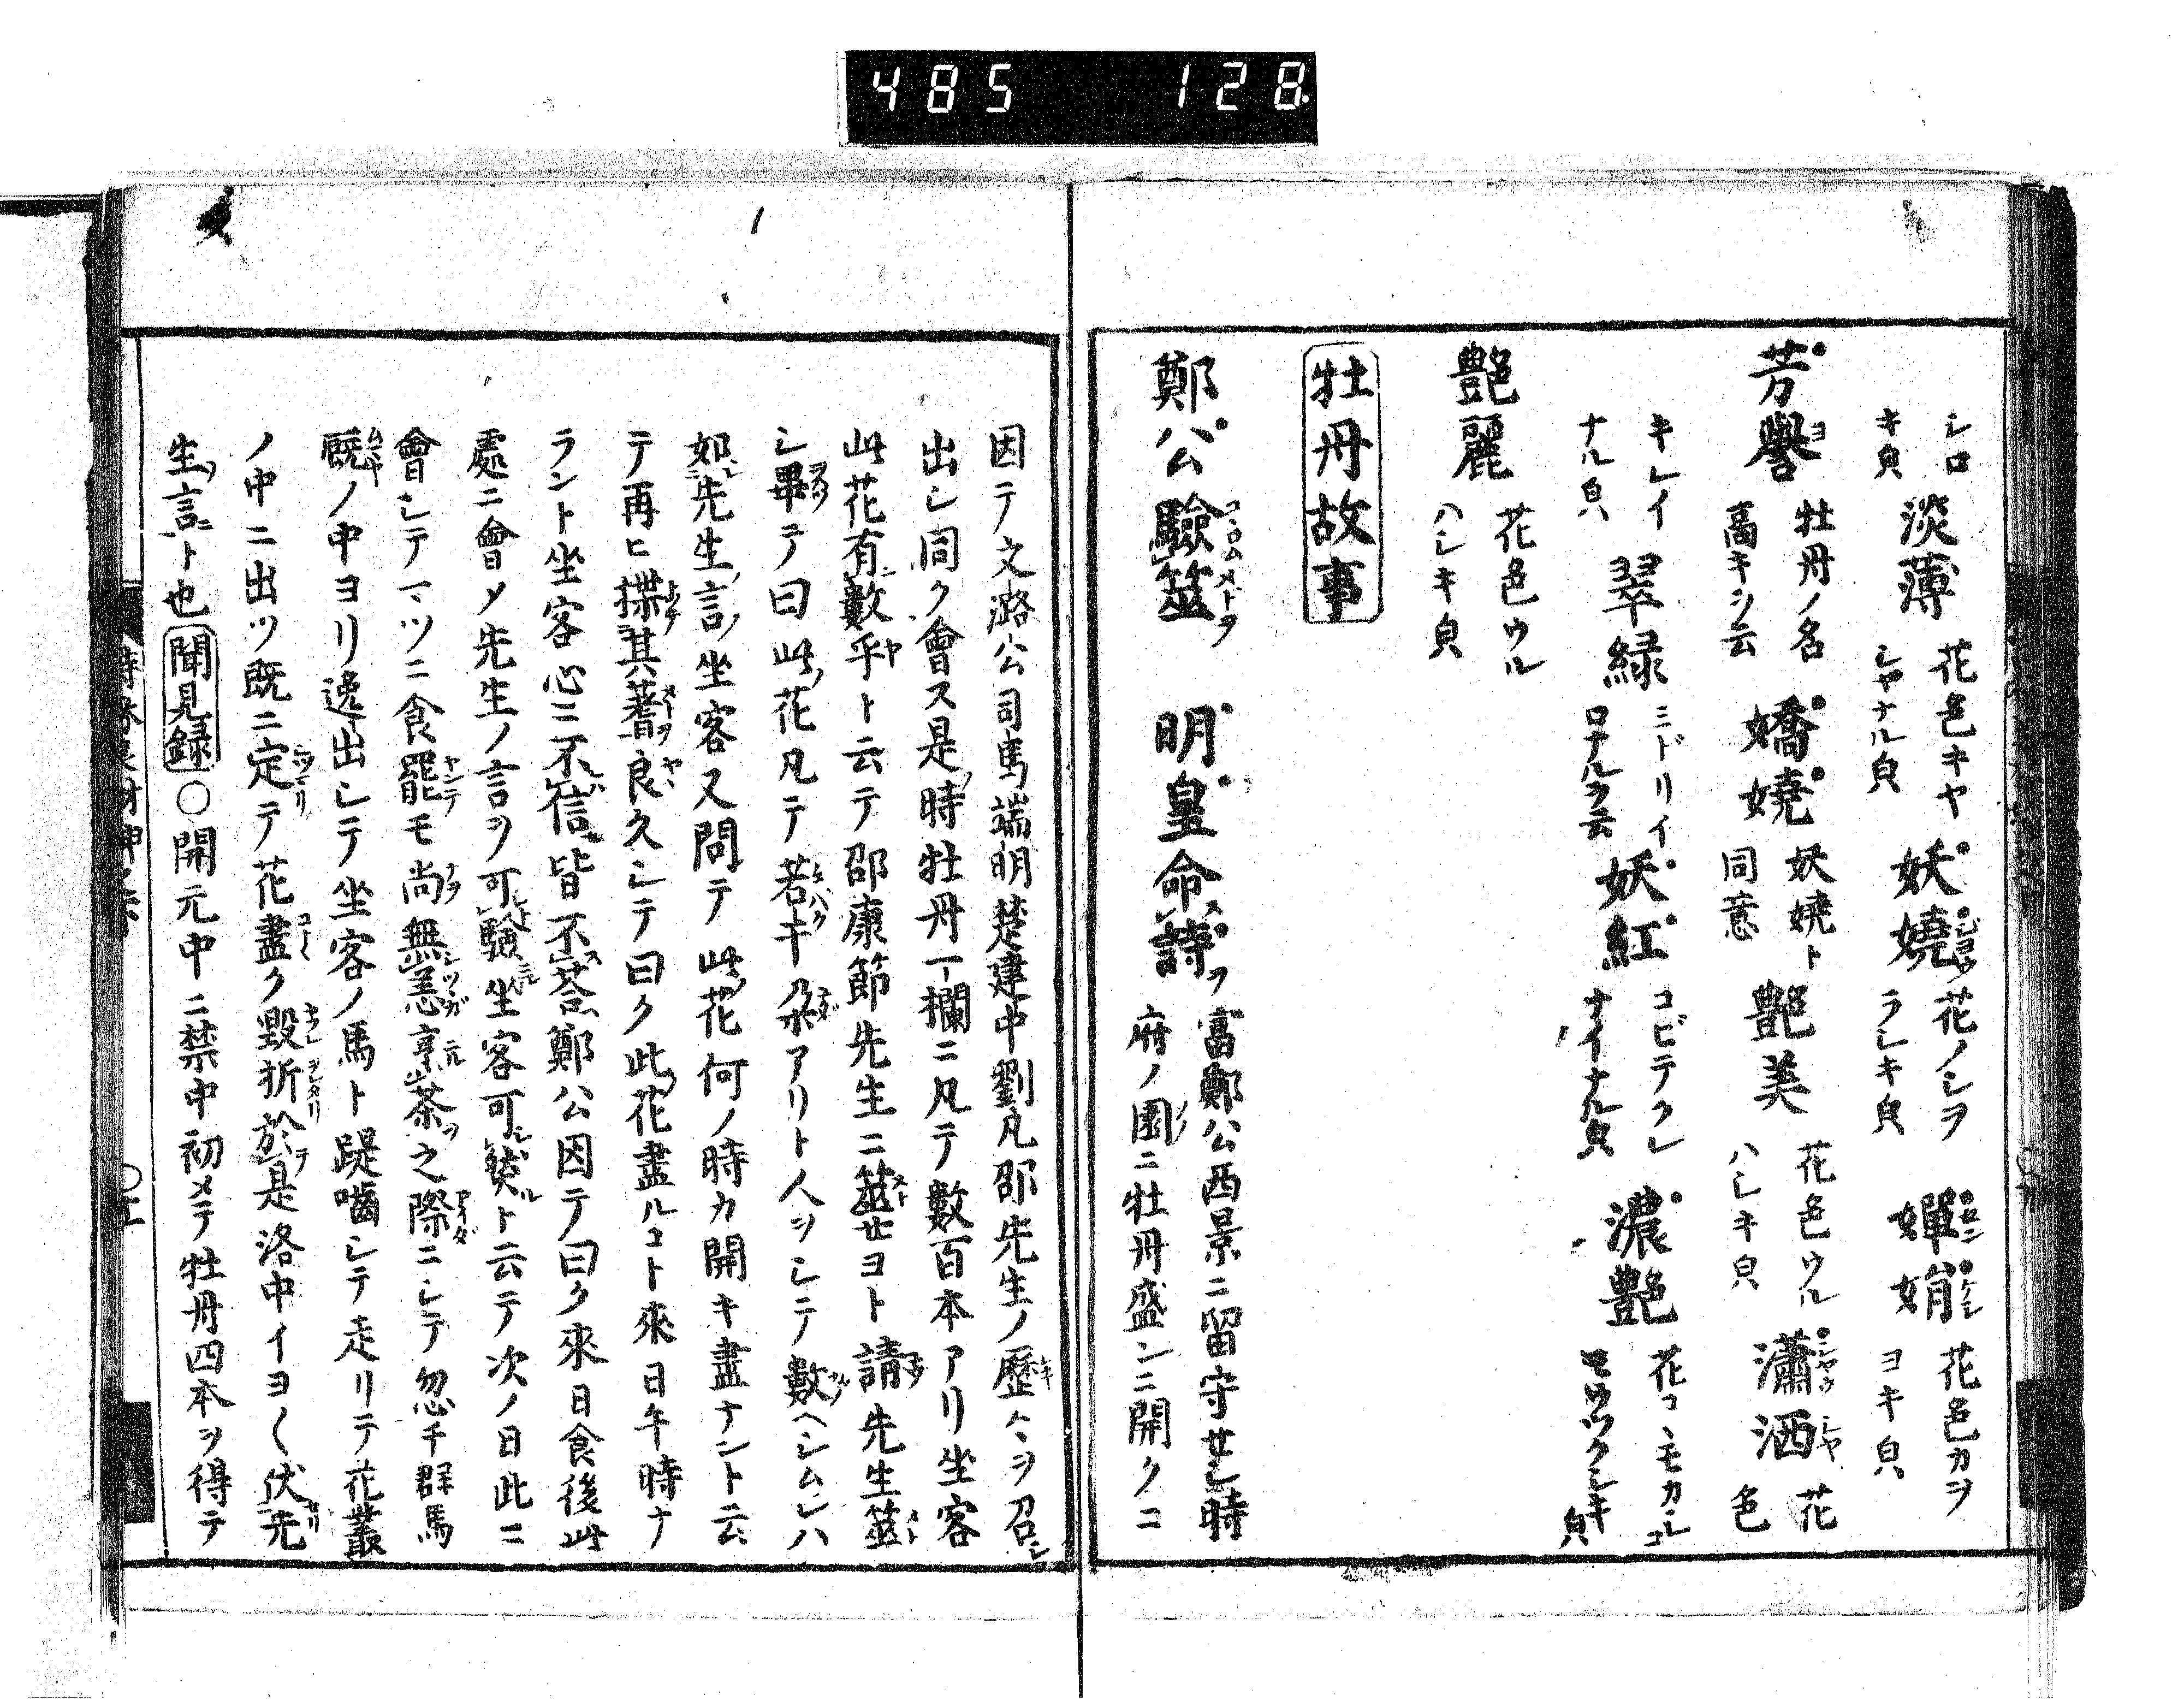 485 128
シロ
キ皃
淡薄
花色キヤ
シヤナル皃
妖嬈
花ノシヲ
ラシキ皃
嬋娟
花色カヲ
ヨキ皃
芳譽
牡丹ノ名
高キヲ云
嬌嬈
妖嬈ト
同意
艶美
花色ウル
ハシキ皃
瀟洒
花
色
キレイ
ナル皃
翠緑
ミドリイ
ロナルヲ云
妖紅
コビテクレ
ナイナル皃
濃艶
花コ
艶麗
花色ウル
ハシキ皃
牡丹故事
鄭公驗筮 明皇命詩
富鄭公西京ニ留守セシ時
府ノ園ニ牡丹盛ンニ開クニ
因テ文潞公司馬端明楚建中劉凡邵先生ノ歴々ヲ召シ
出シ同ク會ス是時牡丹一欄ニ凡テ數百本アリ坐客
此花有數乎ト云テ邵康節先生ニ筮セヨト請先生筮
シ畢テ曰此花凡テ若干朶アリト人ヲシテ數ヘシムレハ
如先生言坐客又問テ此花何ノ時カ開キ盡ナント云
テ再ヒ揲其蓍良久シテ曰ク此花盡ルコト來日午時ナ
ラント坐客心ニ不信皆不荅鄭公因テ曰ク來日食後此
處ニ會メ先生ノ言ヲ可驗坐客可笑ト云テ次ノ日此ニ
會シテマツニ食罷モ尚無恙烹茶之際ニシテ忽千群馬
厩ノ中ヨリ逸出シテ坐客ノ馬ト踶嚙シテ走リテ花叢
ノ中ニ出ツ既ニ定テ花盡ク毀折於是洛中イヨ〱伏先
生言ト也聞見録〇開元中ニ禁中初メテ牡丹四本ヲ得テ